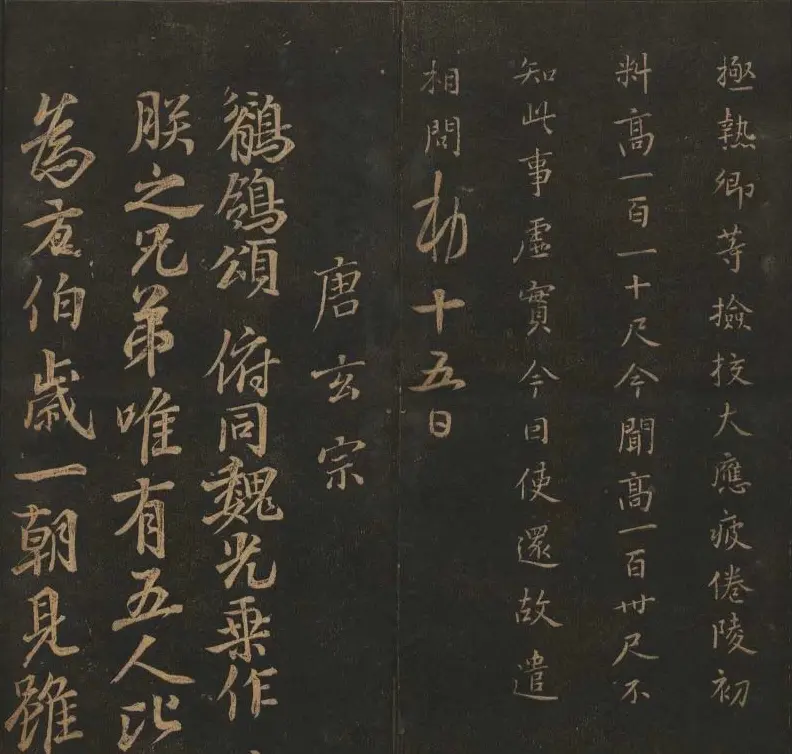 極熱卿等撿挍大應疲倦陵初
料高一百一十尺今聞高一百卌尺不
知此事虛實今因使還故遣
相問勅十五日
唐玄宗
鶺鴒頌 俯同魏光乗作
朕之兄弟唯有五人比
為方伯歳一朝見雖